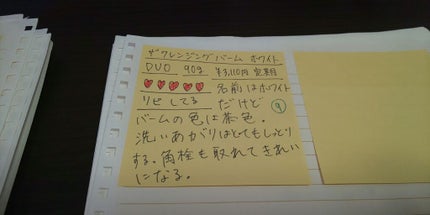 ザ クレンジング バーム ホワイト
DUO 90g ¥3,110円 定期
♥♥♥♥♥ 名前はホワイト
リピしてる だけど ⑨
バームの色は茶色。
洗いあがりはとてもしっとり
する。角栓も取れてきれい
になる。